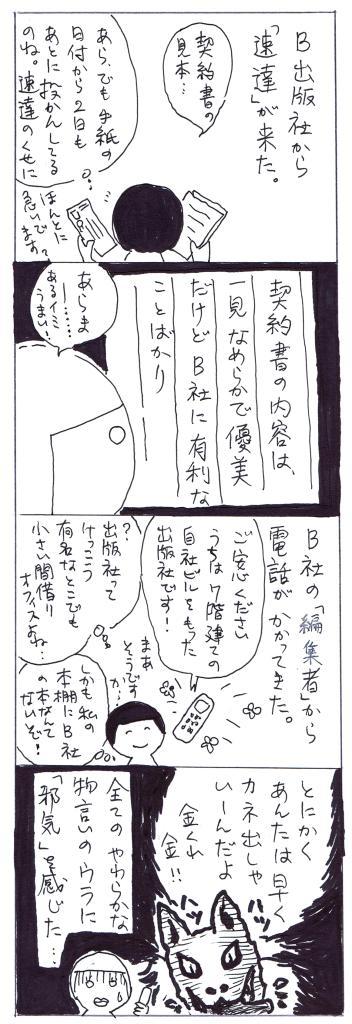 B出版社から
「速達」が来た。
契約書の
見本…
あら、でも手紙の
日付から2日も
あとに投かんしてる
のね。速達のくせに
ほんとに
急いでます?
契約書の内容は、
一見なめらかで優美
だけどB社に有利な
ことばかり
あらま
………
あるイミ
うまい!
B社の「編集者」から
電話がかかってきた。
ご安心ください
うちは7階建ての
自社ビルをもった
出版社です!
まあ
そうですか…
?
出版社って
けっこう
有名なとこでも
小さい間借り
オフィスよね…
しかも私の
本棚にB社
の本なんて
ないぞ!
とにかく
あんたは早く
カネ出しゃ
いーんだよ
金くれ
金!!
ハッ
ハッ
全てのやわらかな
物言いのウラに
「邪気」を感じた…